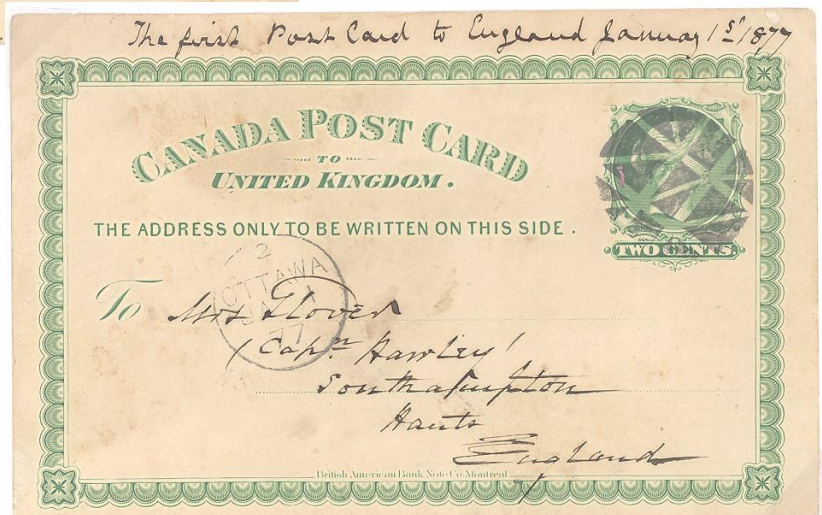 The first Post Card to England January 1st 1877
CANADA POST CARD
TO
UNITED KINGDOM.
THE ADDRESS ONLY TO BE WRITTEN ON THIS SIDE.
TWO CENTS
2
OTTAWA
JA 1
77
To Mrs Glover
(Capn Hawley)
Southampton
Hants
England
British American Bank Note Co. Montreal.